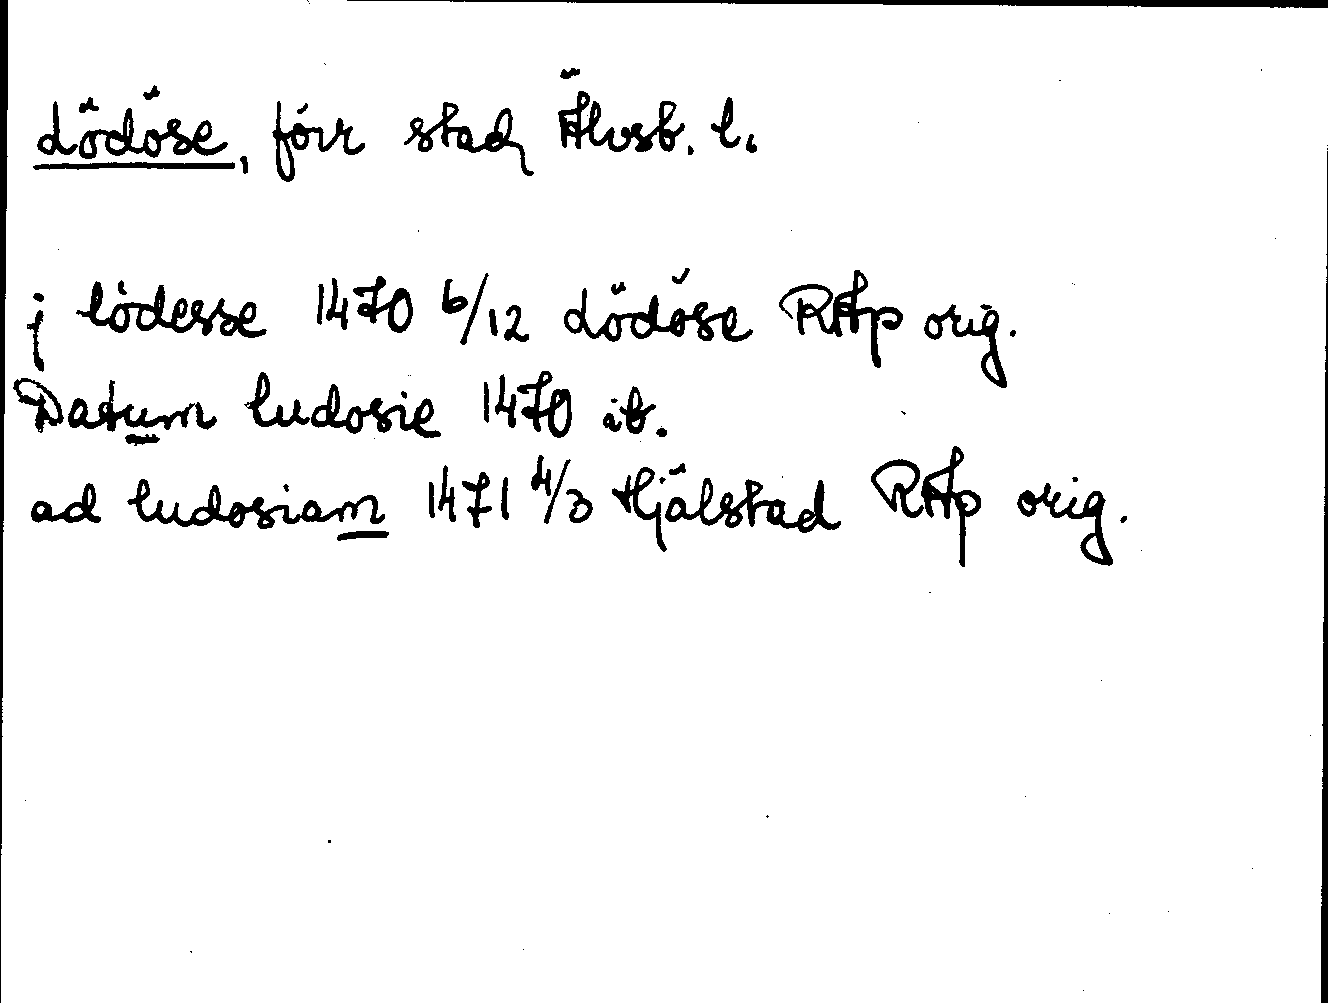 Lödöse, förr stad, Älvsb. l.
j lödesse 1470 6/12 Lödöse RAp orig.
Datum ludosie 1470 ib.
ad ludosiam 1471 4/3 Hjälstad RAp orig.